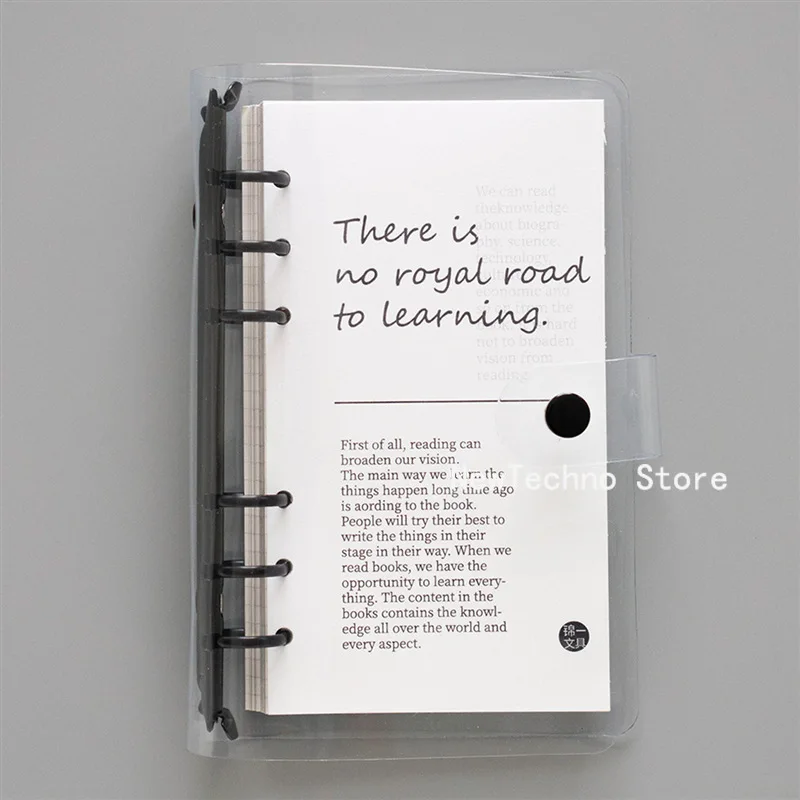 There is
no royal road
to learning.
We can read
theknowledge
about biogra-
phy, science,
technology,
economic and
not to broaden
vision from
reading.
First of all, reading can
broaden our vision.
The main way we learn the
things happen long time ago
is aording to the book.
People will try their best to
write the things in their
stage in their way. When we
read books, we have the
opportunity to learn every-
thing. The content in the
books contains the knowl-
edge all over the world and
every aspect.
NewTechno Store
锦一
文具